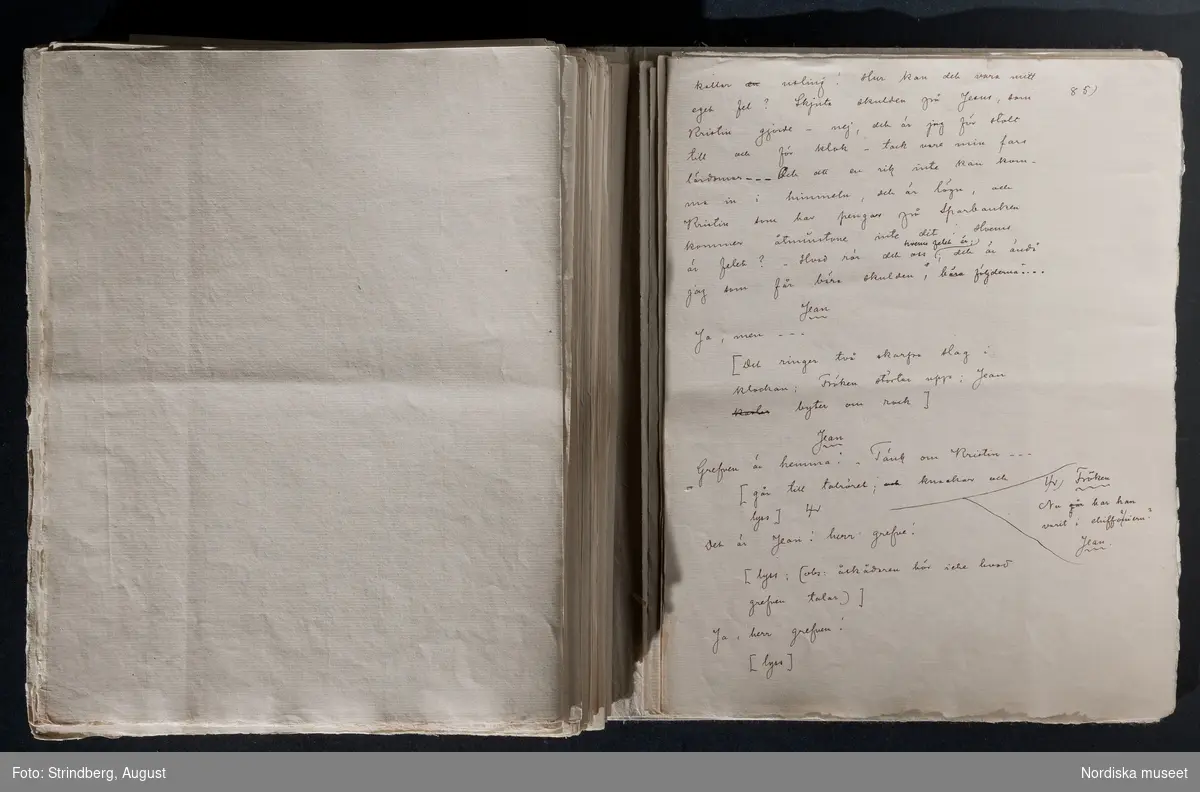 kallar usling! Hur kan det vara mitt
85)
eget fel? Skjuta skulden på Jesus, som
Kristin gjorde – nej, det är jag för stolt
till och för klok – tack vare min fars
lärdomar --- Och att en rik inte kan kom-
ma in i himmeln, det är lögn, och
Kristin som har pengar på Sparbanken
kommer åtminstone inte dit! Hvems
hvems felet är;
är felet? – Hvad rör det oss; det är ändå
jag som får bära skulden, bära följderna ---
Jean
Ja, men ---
[Det ringer två skarpa slag i
klockan; Fröken störtar upp; Jean
byter om rock]
Jean
Grefven är hemma! – Tänk om Kristin ---
[går till talröret; och knackar och
lyss]
Det är Jean! herr grefve!
[lyss; (obs: åskådaren hör icke hvad
grefven talar)]
Ja, herr grefven!
[lyss]
Fröken
Nu har han
varit i chiffonieren?
Jean
Foto: Strindberg, August
Nordiska museet